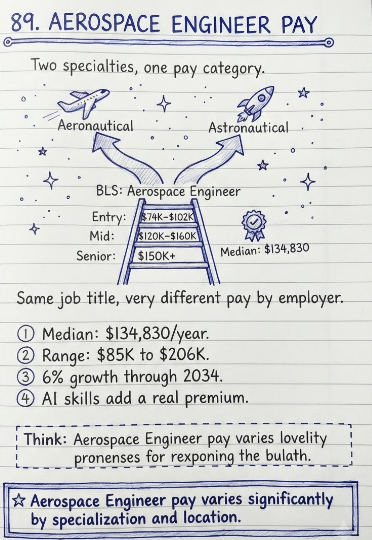 89. AEROSPACE ENGINEER PAY
Two specialties, one pay category.
Aeronautical
Astronautical
BLS: Aerospace Engineer
Entry: $74K–$102K
Mid: $120K–$160K
Senior: $150K+
Median: $134,830
Same job title, very different pay by employer.
① Median: $134,830/year.
② Range: $85K to $206K.
③ 6% growth through 2034.
④ AI skills add a real premium.
Think: Aerospace Engineer pay varies lovelity
pronenses for rexponing the bulath.
☆ Aerospace Engineer pay varies significantly
by specialization and location.